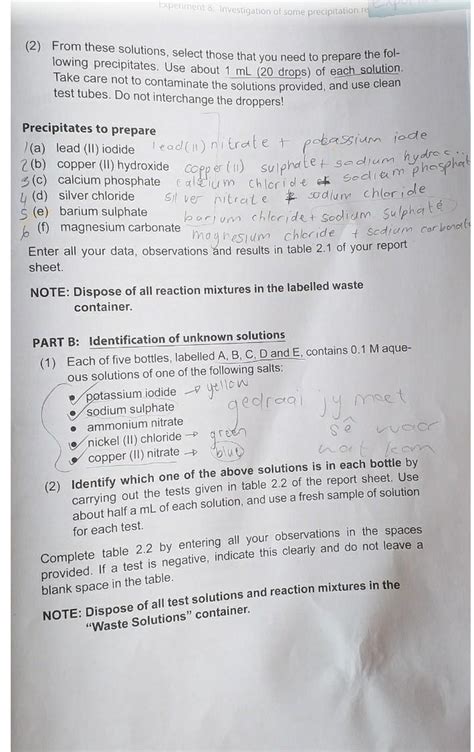 Experiment 8: Investigation of some precipitation re
(2) From these solutions, select those that you need to prepare the fol-
lowing precipitates. Use about 1 mL (20 drops) of each solution.
Take care not to contaminate the solutions provided, and use clean
test tubes. Do not interchange the droppers!
Precipitates to prepare
1 (a) lead (II) iodide lead(II) nitrate + potassium iode
2 (b) copper (II) hydroxide copper(II) sulphate + sodium hydrox..
3 (c) calcium phosphate calcium chloride + sodium phosphat
4 (d) silver chloride silver nitrate + sodium chloride
5 (e) barium sulphate barium chloride + sodium sulphate
6 (f) magnesium carbonate magnesium chloride + sodium carbonate
Enter all your data, observations and results in table 2.1 of your report
sheet.
NOTE: Dispose of all reaction mixtures in the labelled waste
container.
PART B: Identification of unknown solutions
(1) Each of five bottles, labelled A, B, C, D and E, contains 0.1 M aque-
ous solutions of one of the following salts:
• potassium iodide → yellow
• sodium sulphate gedraai jy moet
• ammonium nitrate sê waar
• nickel (II) chloride → green
• copper (II) nitrate → blue
(2) Identify which one of the above solutions is in each bottle by
carrying out the tests given in table 2.2 of the report sheet. Use
about half a mL of each solution, and use a fresh sample of solution
for each test.
Complete table 2.2 by entering all your observations in the spaces
provided. If a test is negative, indicate this clearly and do not leave a
blank space in the table.
NOTE: Dispose of all test solutions and reaction mixtures in the
"Waste Solutions" container.